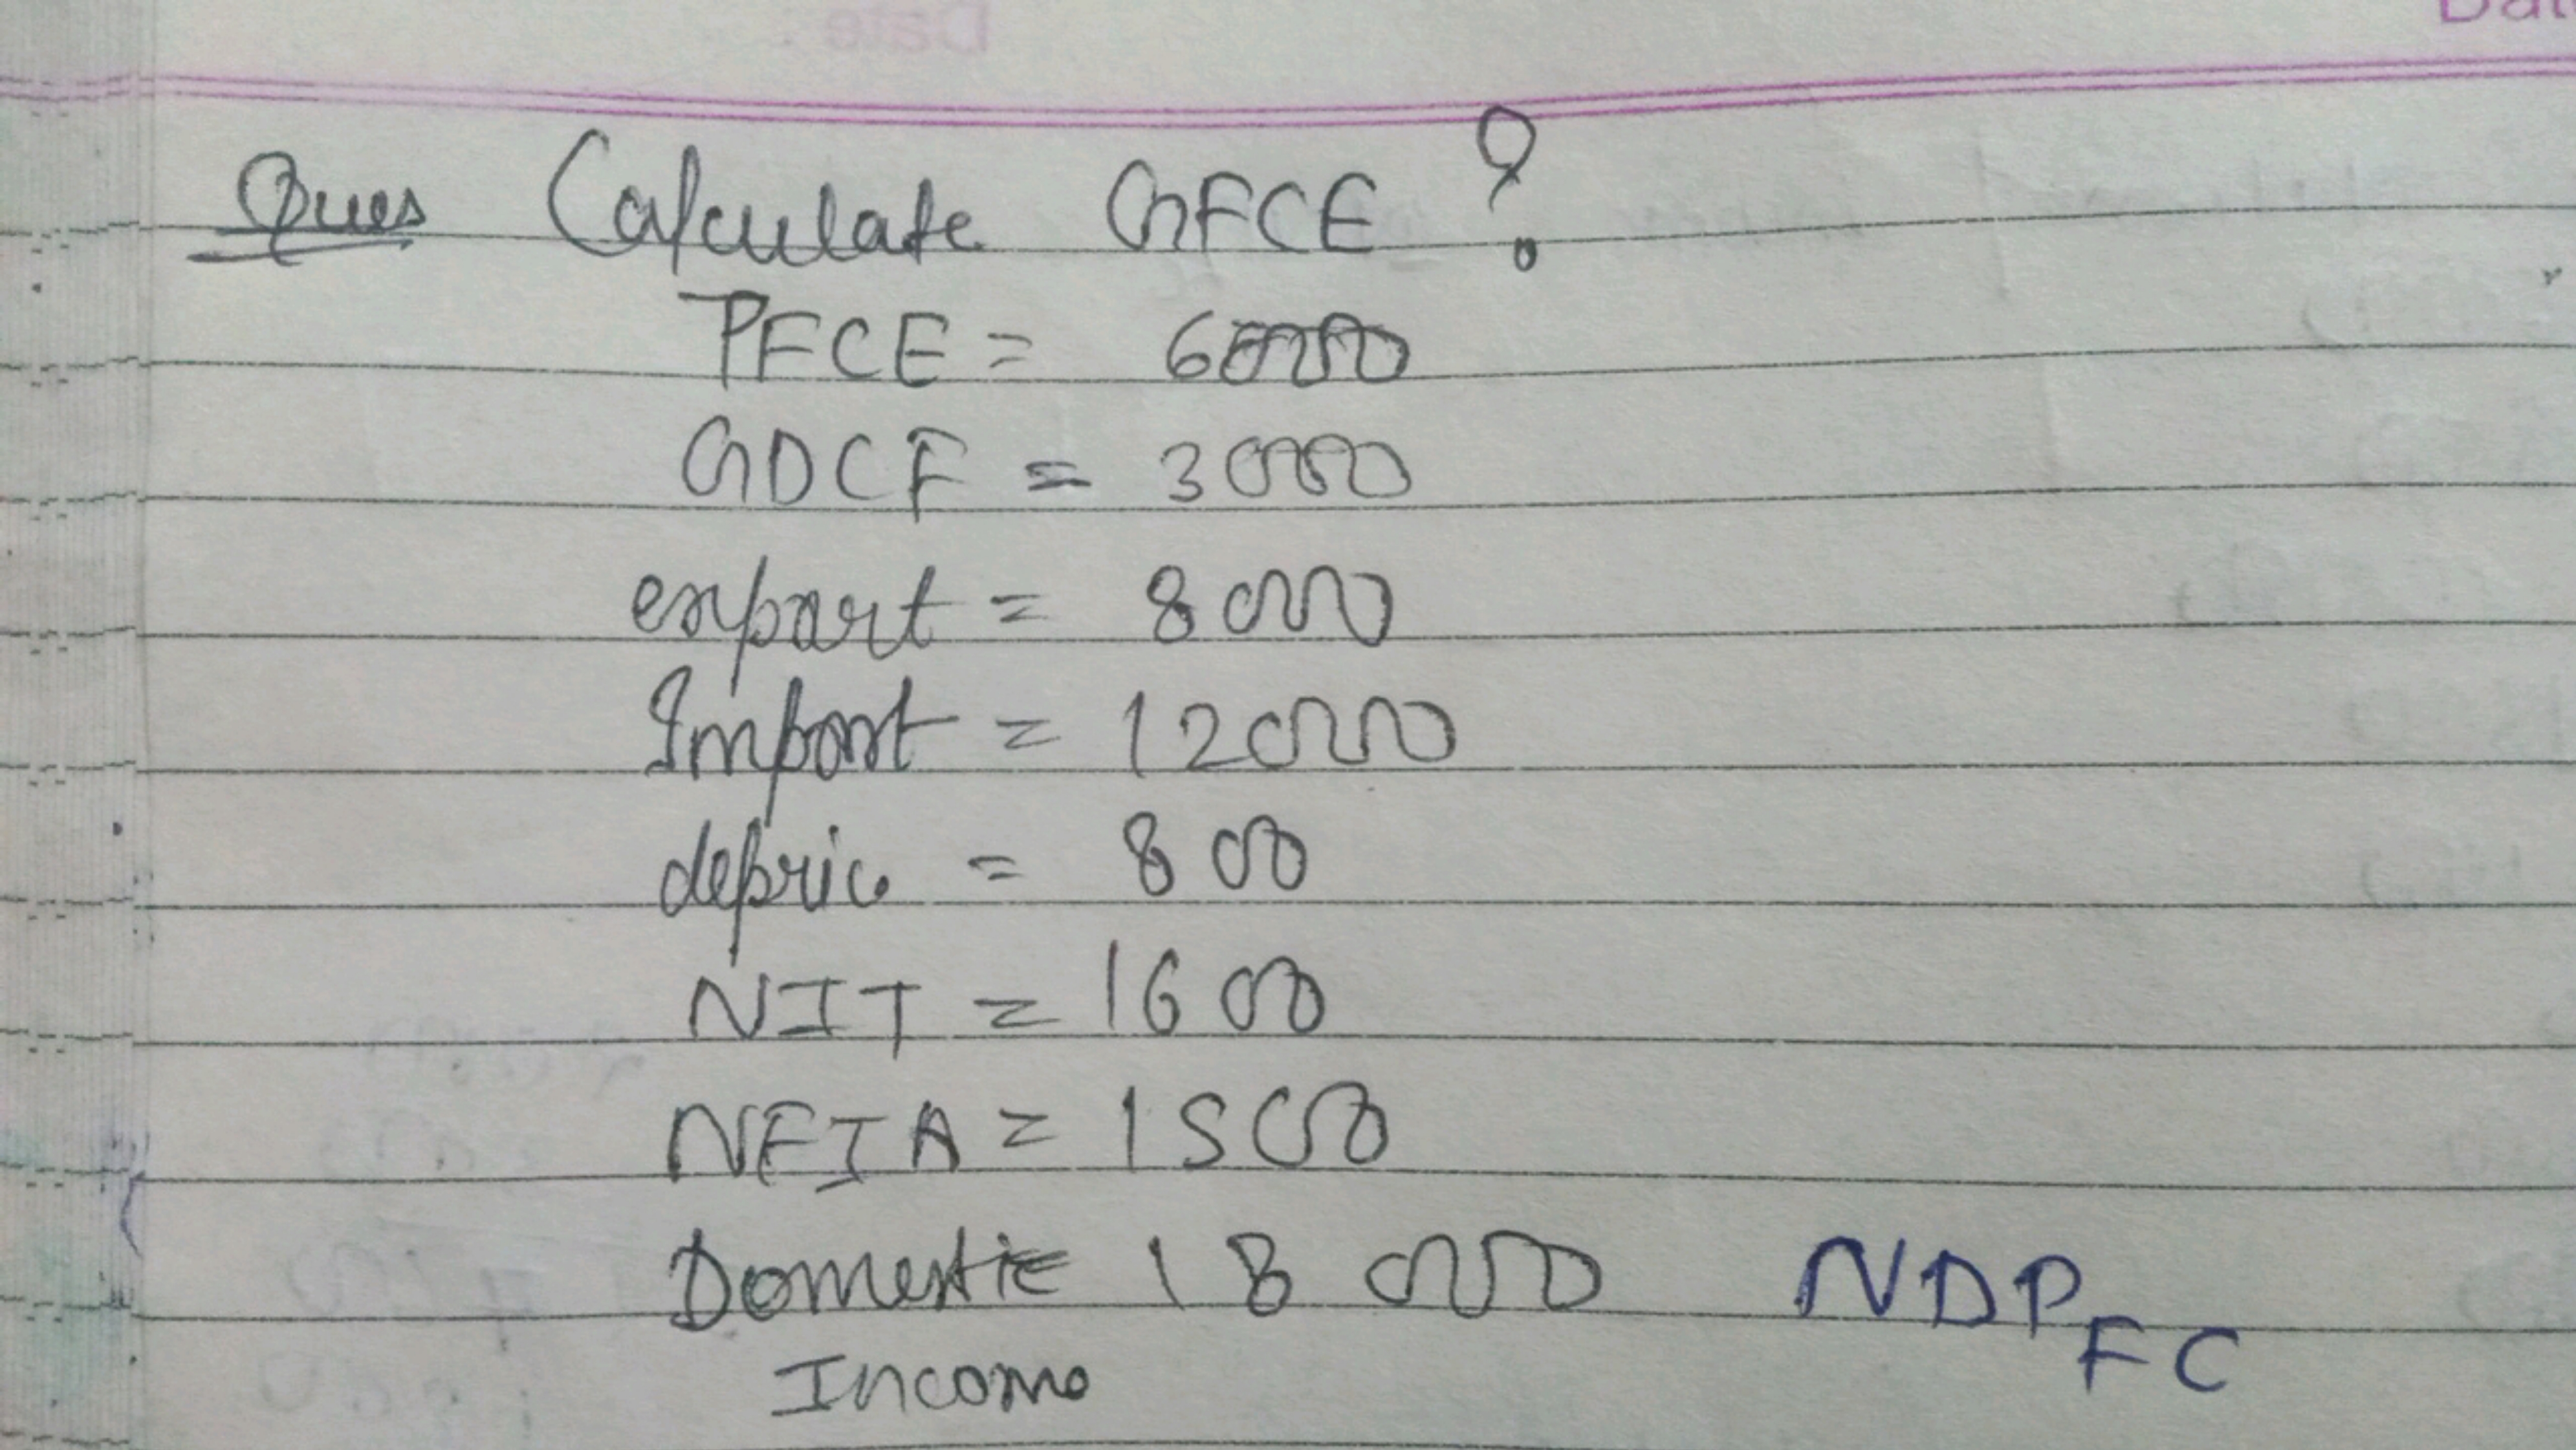 Date
Ques Calculate GFCE ?
PFCE = 6000
GDCF = 3000
export = 8000
Import = 12000
depric = 800
NIT = 1600
NFIA = 1500
Domestic 18000 NDP FC
Income